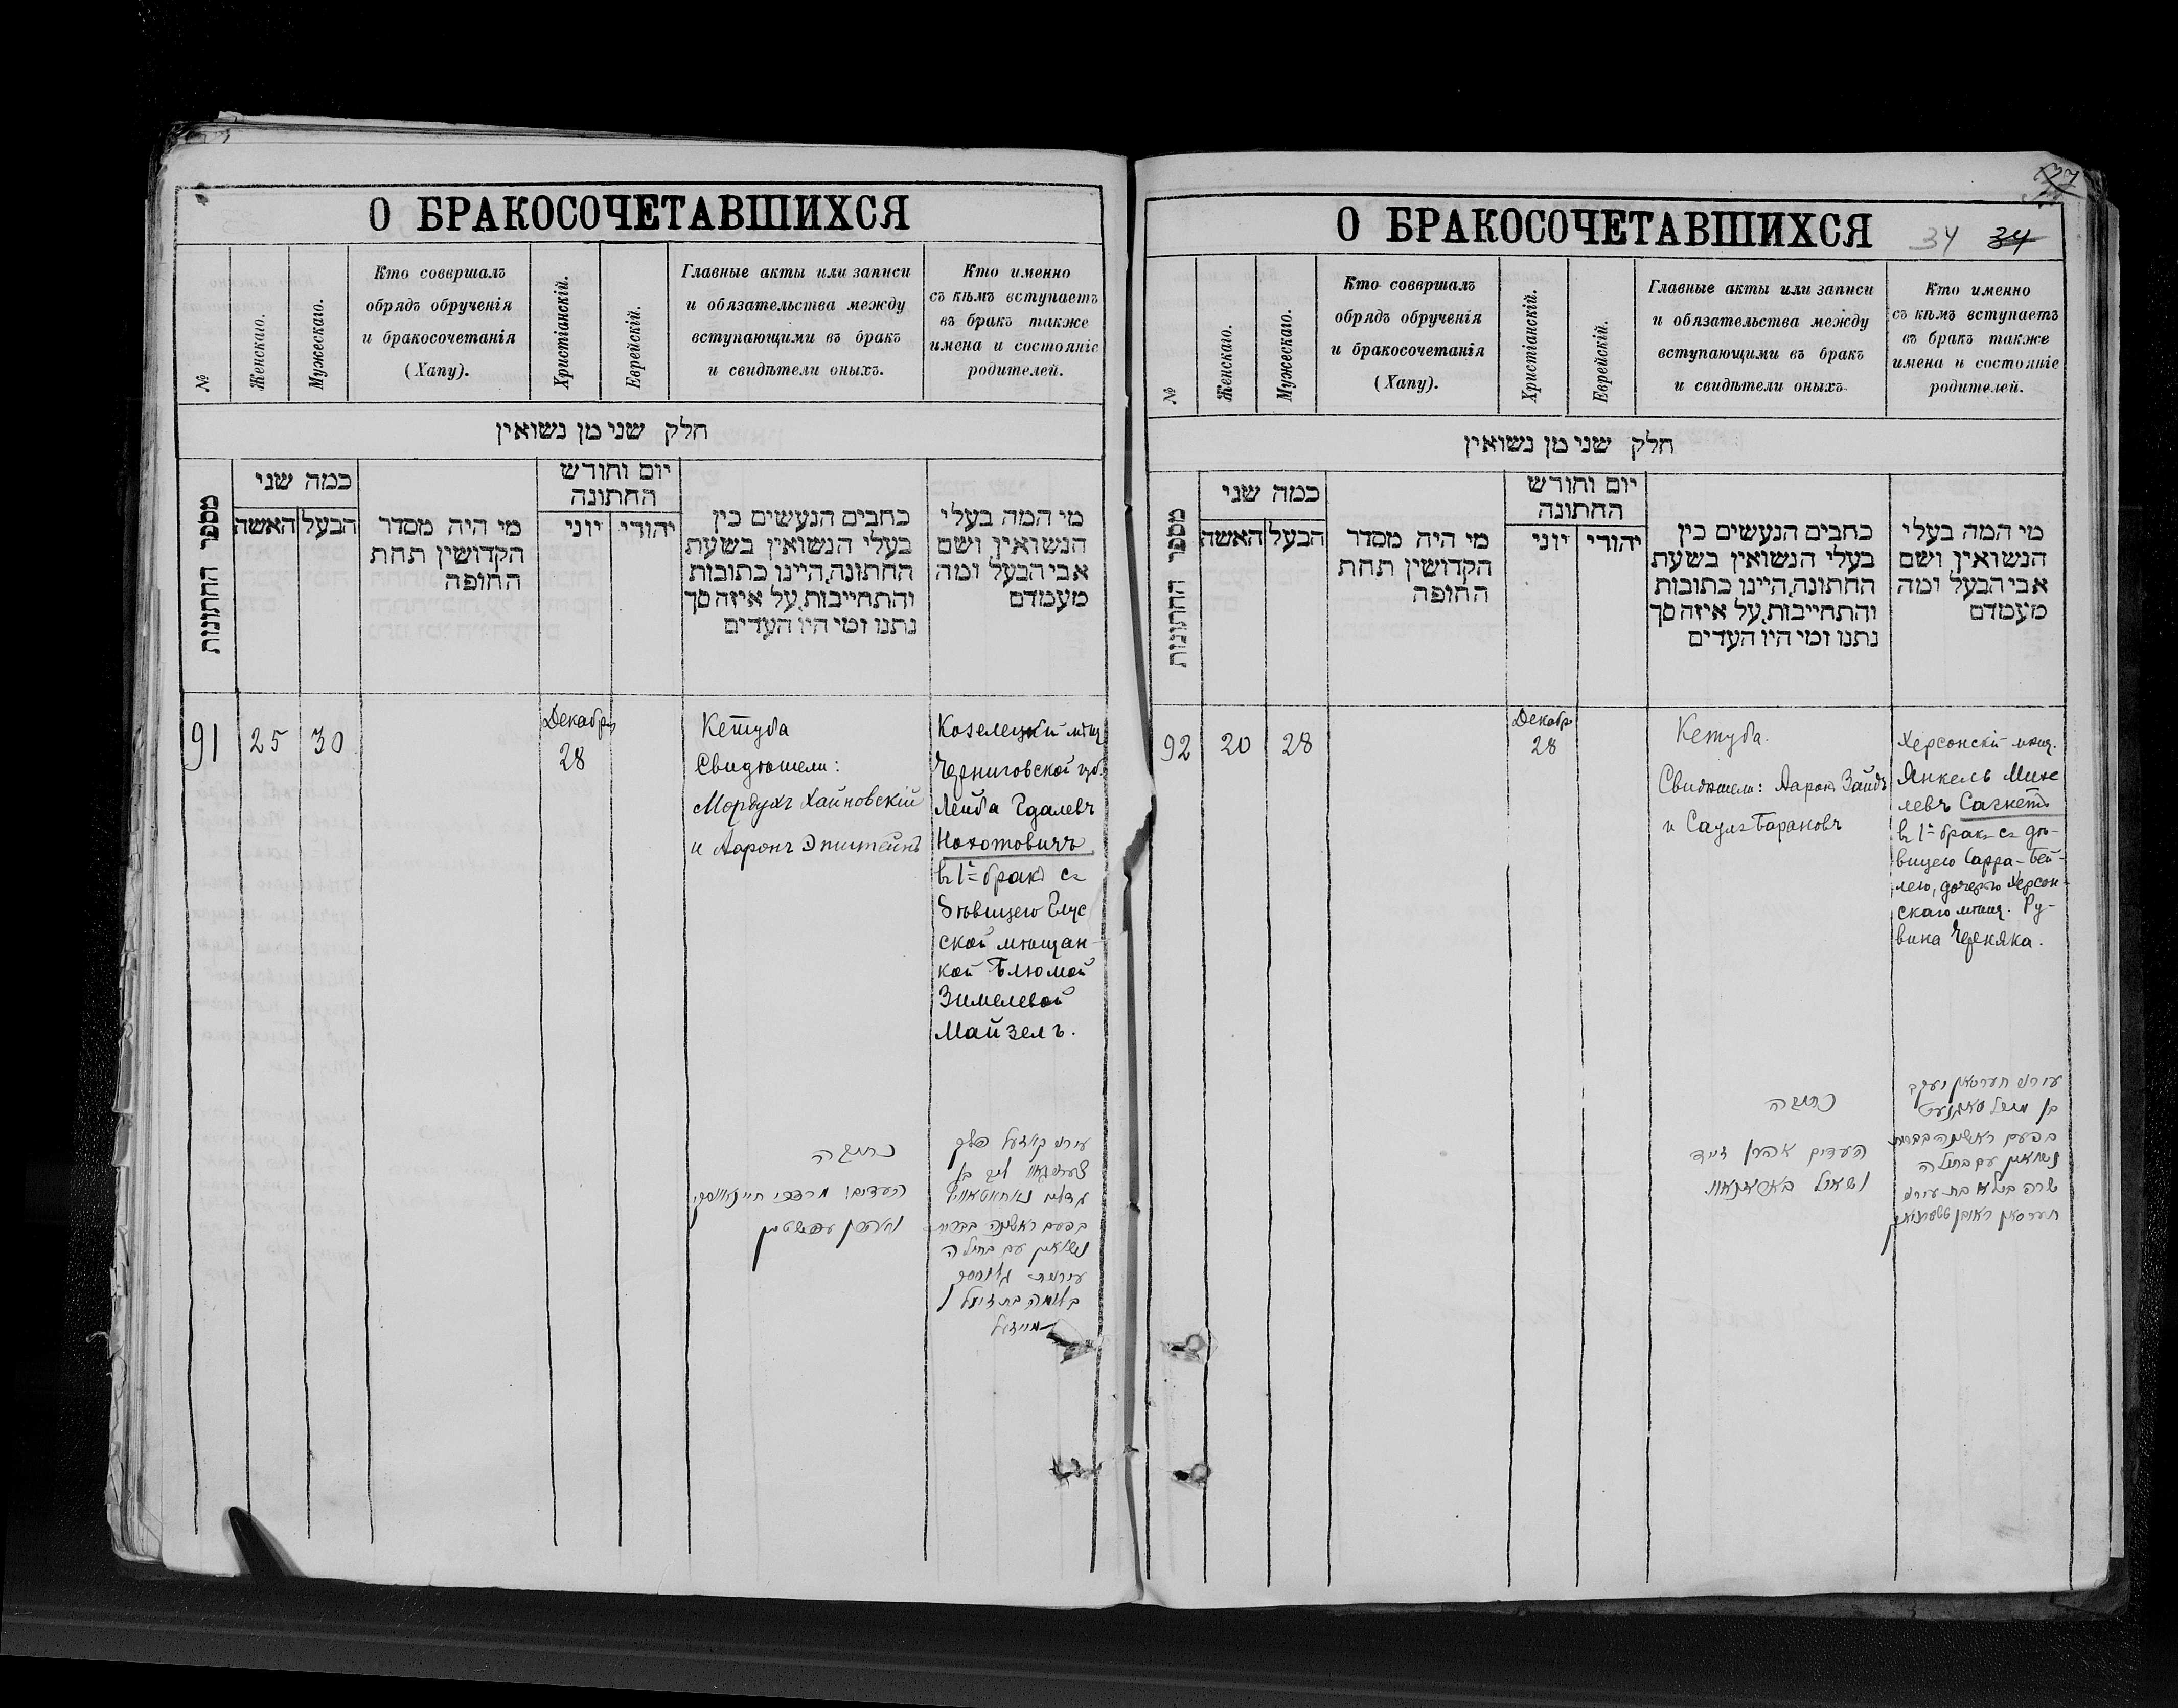 О БРАКОСОЧЕТАВШИХСЯ
№
Женскаго.
Мужескаго.
Кто соввршалъ
обрядъ обрученія
и бракосочетанія
(Хапу).
Христіанскій.
Еврейскій.
Главные акты или записи
и обязательства между
вступающими въ бракъ
и свидѣтели оныхъ.
Кто именно
съ кѣмъ вступаетъ
въ бракъ также
имена и состояніе
родителей.
חלק שני מן נשואין
מספר החתונות
כמה שני
האשה
הבעל
מי היה מסדר
הקדושין תחת
החופה
יום וחודש
החתונה
יוני
יהודי
כחבים הנעשים כין
בעלי הנשואין בשעת
החתונה,היינו כתובות
והתחייבות,על איזה סך
נתנו ומי היו העדים
מי המה בעלי
הנשואין ושם
אבי הבעל ומה
מעמדם
91
25
30
Декабрь
28
Кетуба
Свидѣтели:
Мордухъ Хайновскій
и Ааронъ Эпштейнъ
Козелецкій мѣщ
Черниговской губ.
Лейба Гдалевъ
Нохотовичъ
въ 1й бракъ съ
дѣвицею Глус
ской мѣщан-
кой Блюмой
Зимелевой
Майзелъ.
כתובה
העדים: מרדכי חיינאווסקי
ואהרן עפשטיין
בפעם ראשונה בברית
נשואין עם בתולה
בלומה בת זימל
מייזעל
О БРАКОСОЧЕТАВШИХСЯ
34 34
№
Женскаго.
Мужескаго.
Кто соввршалъ
обрядъ обрученія
и бракосочетанія
(Хапу).
Христіанскій.
Еврейскій.
Главные акты или записи
и обязательства между
вступающими въ бракъ
и свидѣтели оныхъ
Кто именно
съ кѣмъ вступаетъ
въ бракъ также
имена и состояніе
родителей.
חלק שני מן נשואין
מספר החתונות
כמה שני
האשה
הבעל
מי היה מסדר
הקדושין תחת
החופה
יום וחודש
החתונה
יוני
יהודי
כחבים הנעשים כין
בעלי הנשואין בשעת
החתונה,היינו כתובות
והתחייבות,על איזה סך
נתנו ומי היו העדים
מי המה בעלי
הנשואין ושם
אבי הבעל ומה
מעמדם
92
20
28
Декабр
28
Кетуба.
Свидѣтели: Ааронъ Зайдъ
и Саулъ Барановъ
Херсонскій мѣщ.
Янкель Мике
левъ Сагнетъ
въ 1й бракъ съ дѣ-
вицею Сарра-Бей-
лею, дочерью Херсон-
скаго мѣщ. Ру-
вина Черняка.
כתובה
העדים אהרן זייד
ושאול באראנאוו
עירוני חערסאן יעקב
בפעם ראשונה בברית
נשואין עם בתולה
שרה ביילא בת עירוני
חערסאן ראובן טשערניאק